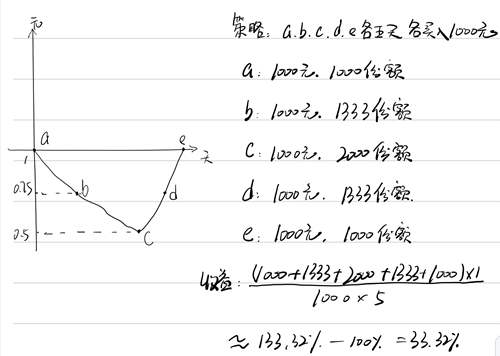 元
策略: a.b.c.d.e各五天 各买入1000元
a
e
天
a: 1000元. 1000份额
1
b: 1000元. 1333份额
0.75
b
d
c: 1000元. 2000份额
d: 1000元. 1333份额.
0.5
c
e: 1000元. 1000份额
收益: (1000+1333+2000+1333+1000)×1
1000×5
≈ 133.32% - 100% = 33.32%